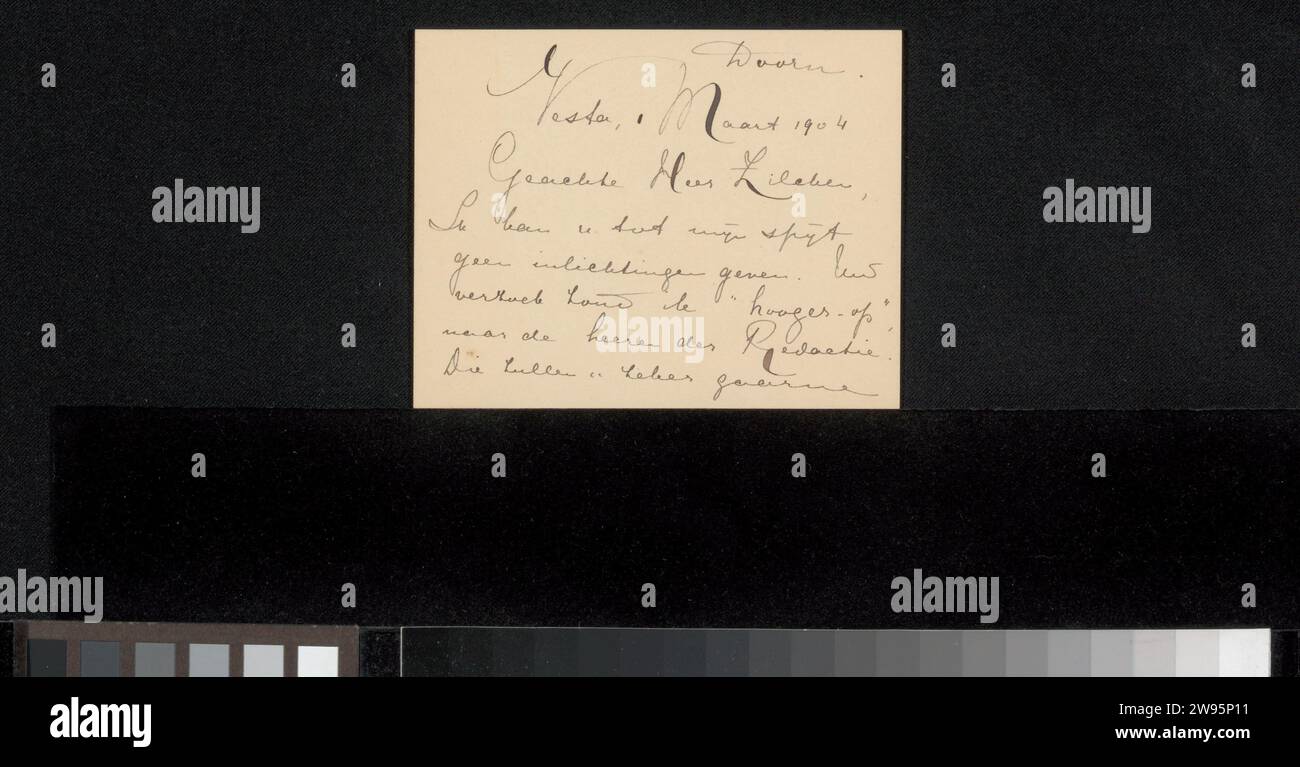 Doorn.
Vesta, 1 Maart 1904
Geachte Heer Zilcken,
Ik kan u tot mijn spijt
geen inlichtingen geven. Uw
verzoek zond ik "hooger-op",
naar de heeren der Redactie.
Die zullen u zeker gaarne
alamy
Image ID: 2W95P11
www.alamy.com